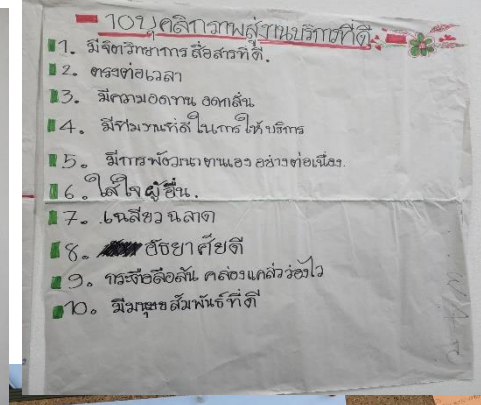 10 บุคลิกภาพสู่งานบริการที่ดี
1. มีจิตวิทยาการสื่อสารที่ดี.
2. ตรงต่อเวลา
3. มีความอดทน อดกลั้น
4. มีทีมงานที่ดีในการให้บริการ
5. มีการพัฒนาตนเองอย่างต่อเนื่อง.
6. ใส่ใจผู้อื่น.
7. เฉลียวฉลาด
8. อัธยาศัยดี
9. กระตือลือล้น คล่องแคล่วว่องไว
10. มีมนุษยสัมพันธ์ที่ดี